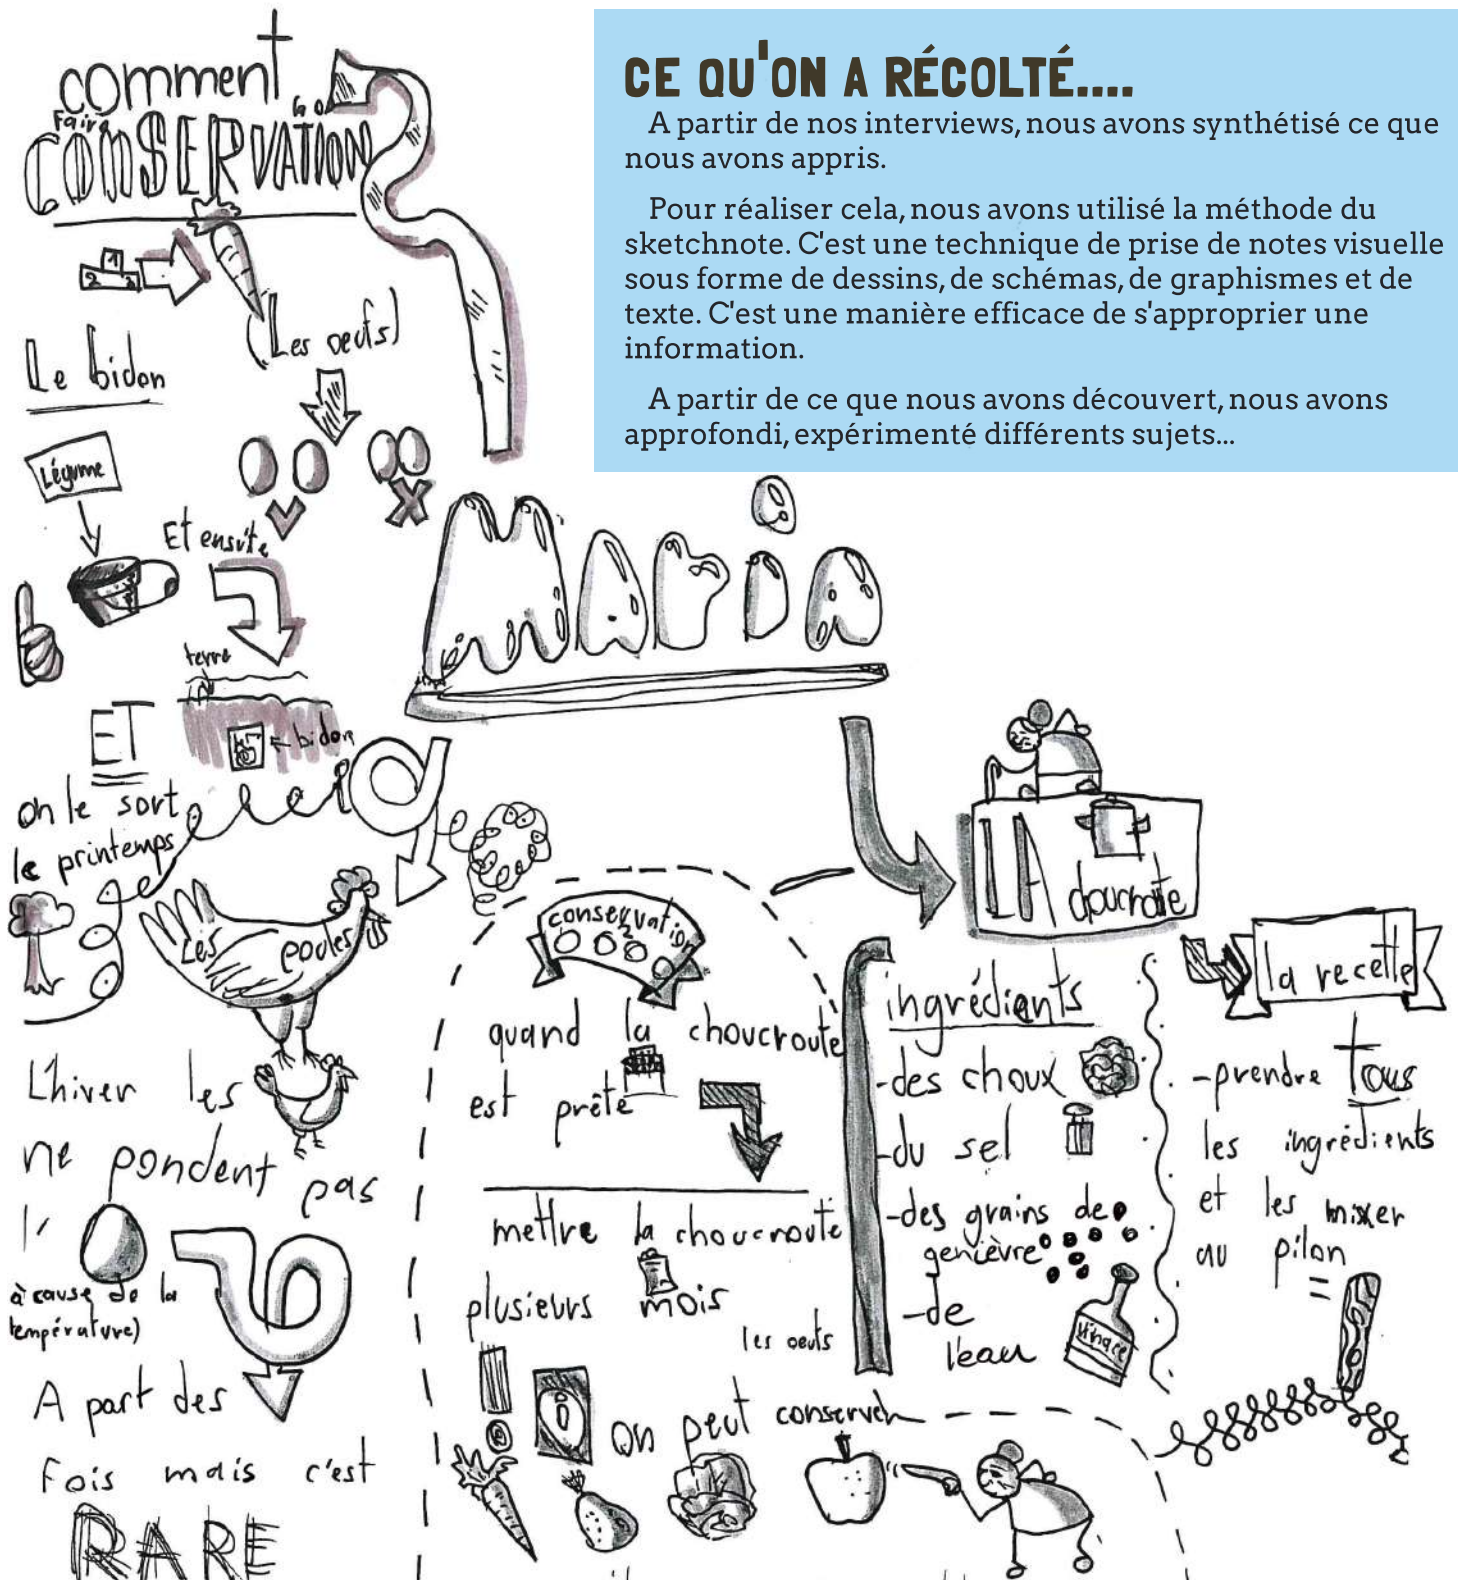 CE QU'ON A RÉCOLTÉ....
A partir de nos interviews, nous avons synthétisé ce que
nous avons appris.
Pour réaliser cela, nous avons utilisé la méthode du
sketchnote. C'est une technique de prise de notes visuelle
sous forme de dessins, de schémas, de graphismes et de
texte. C'est une manière efficace de s'approprier une
information.
A partir de ce que nous avons découvert, nous avons
approfondi, expérimenté différents sujets...
comment
Faire la
CONSERVATION
1
2 3
(Les oeufs)
Le bidon
Légume
Et ensuite
terre
bidon
ET
on le sort
le printemps
MARIA
Les poules
L'hiver les
ne pondent pas
l'
à cause de la
température)
A part des
Fois mais c'est
RARE
conservation
quand la choucroute
est prête
mettre la choucroute
plusieurs mois
les oeufs
on peut conserver
LA
choucroute
ingrédients
-des choux
-du sel
-des grains de
genièvre
-de
l'eau
la recette
-prendre tous
les ingrédients
et les mixer
au pilon